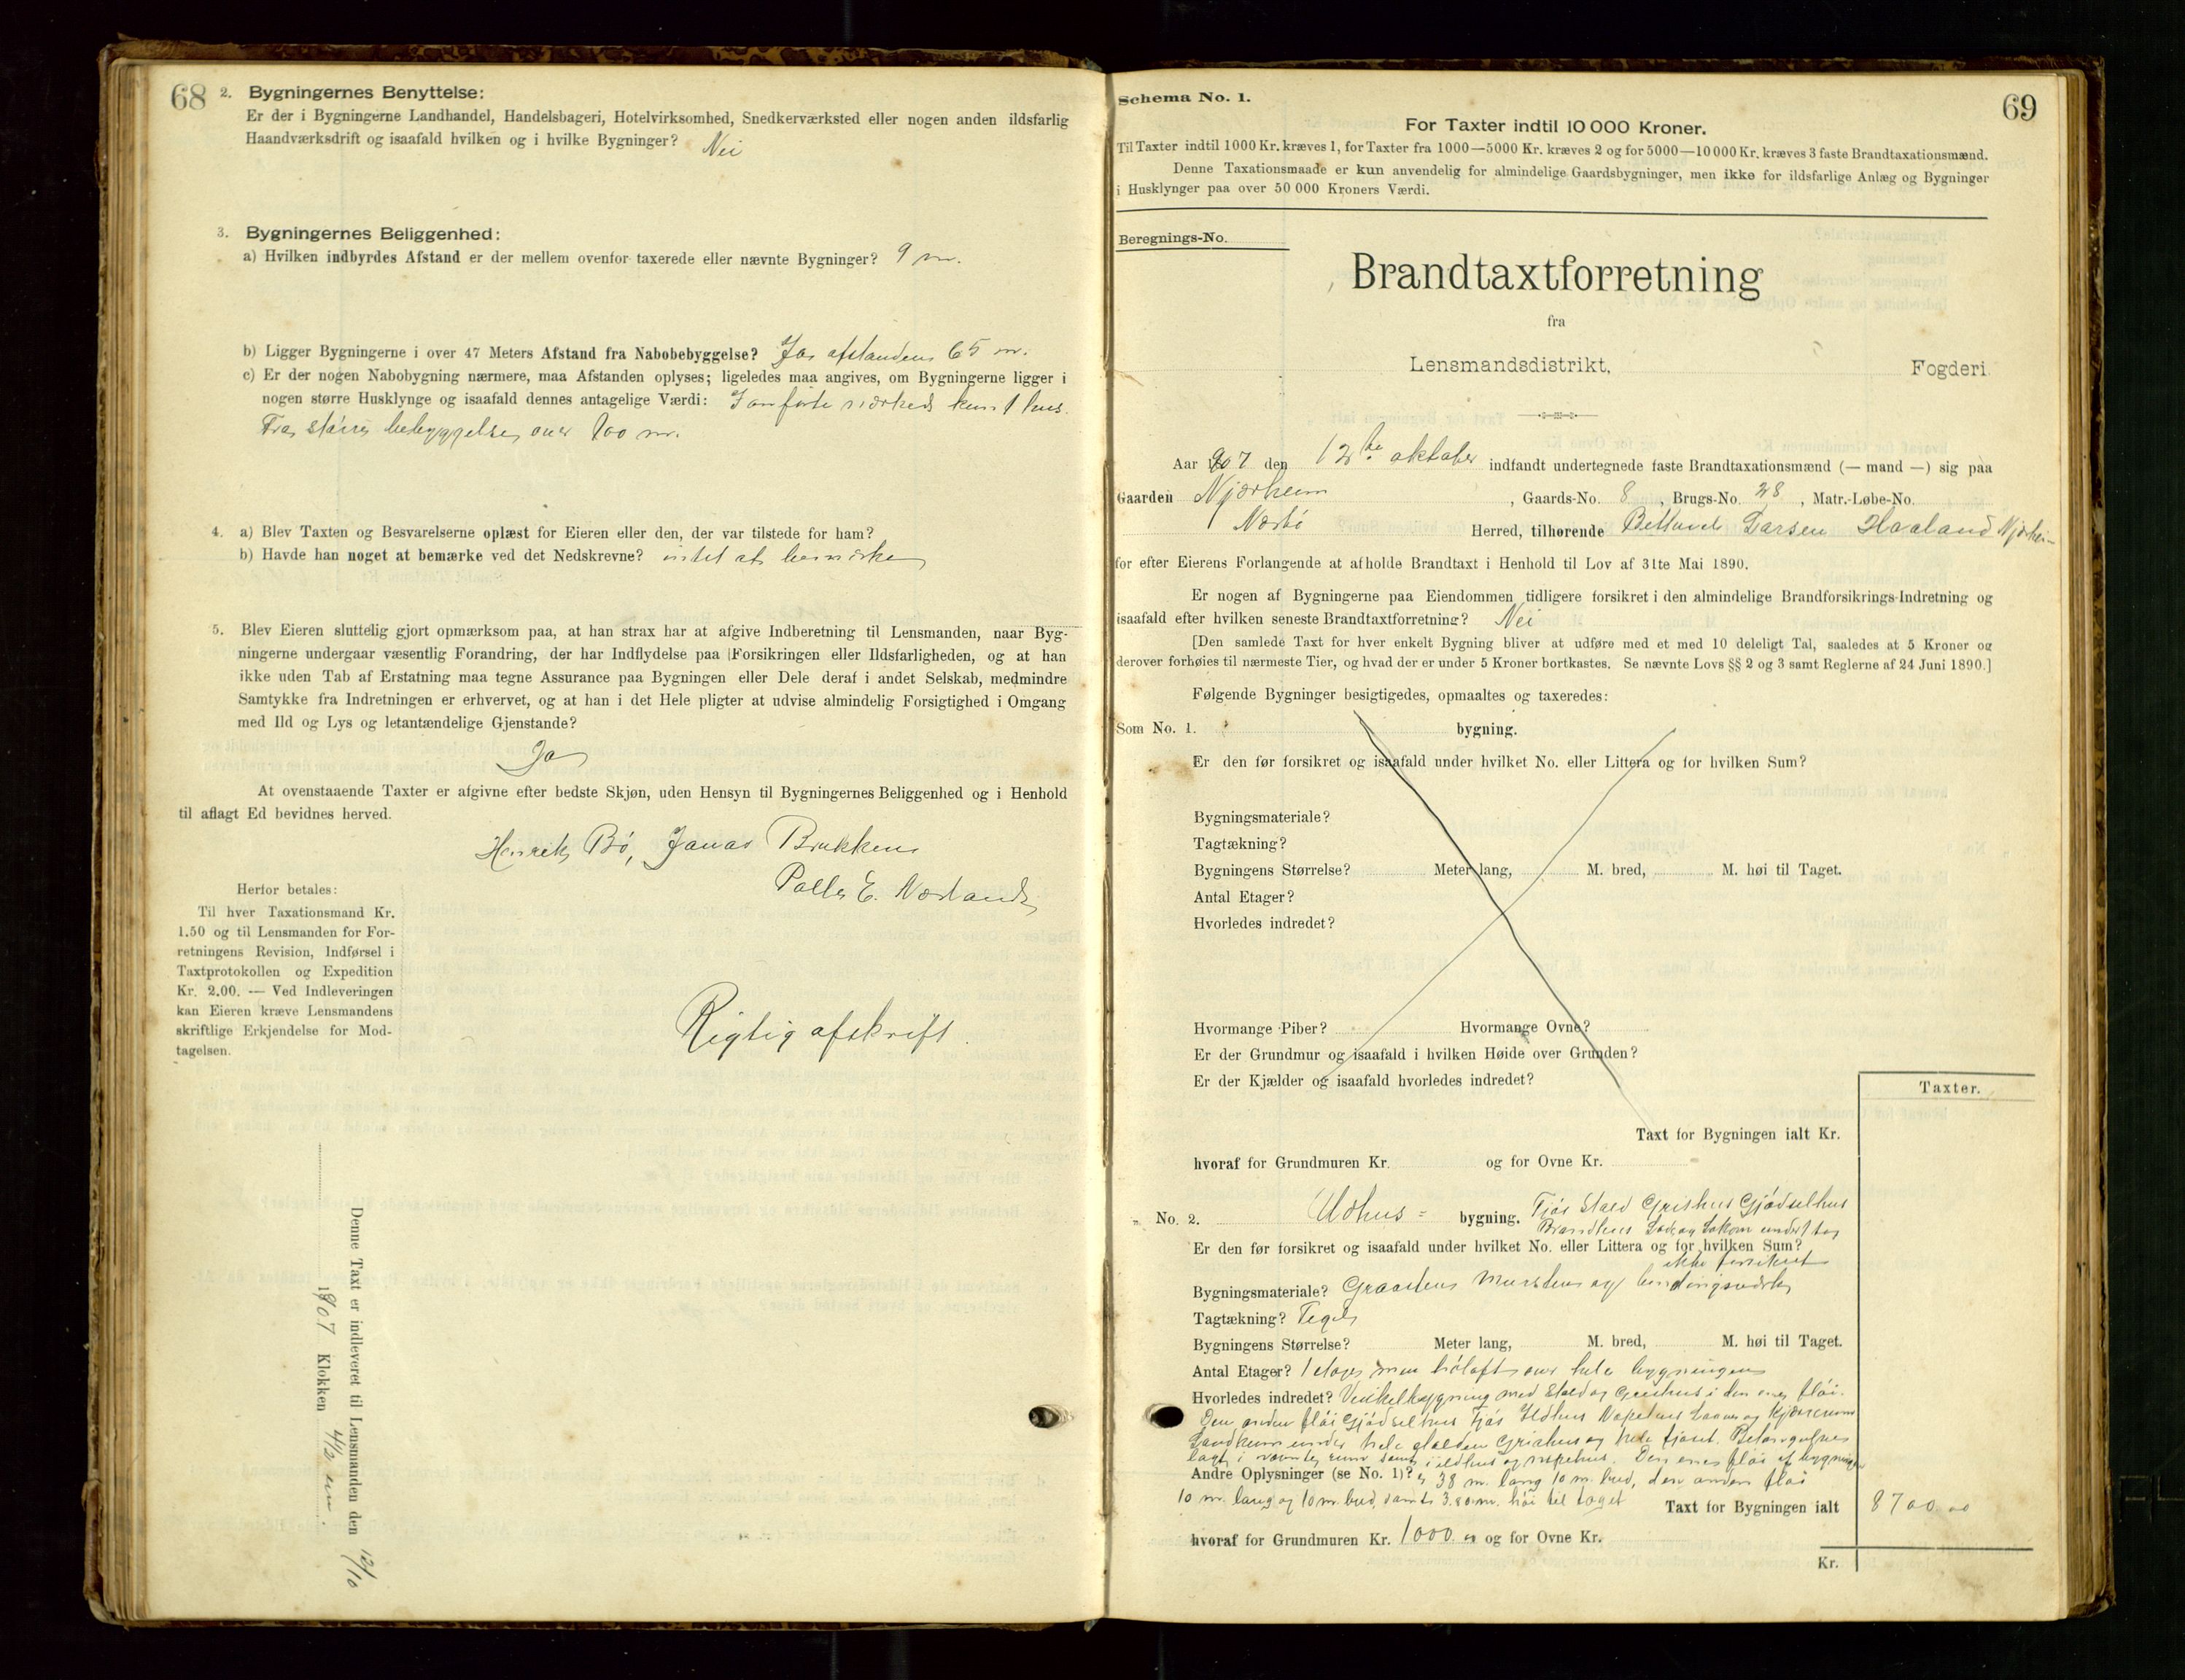 68
2. Bygningernes Benyttelse:
Er der i Bygningerne Landhandel, Handelsbageri, Hotelvirksomhed, Snedkerværksted eller nogen anden ildsfarlig
Haandværksdrift og isaafald hvilken og i hvilke Bygninger? Nei
3. Bygningernes Beliggenhed:
a) Hvilken indbyrdes Afstand er der mellem ovenfor taxerede eller nævnte Bygninger? 9 m.
b) Ligger Bygningerne i over 47 Meters Afstand fra Nabobebyggelse? Ja, afstanden 65 m.
c) Er der nogen Nabobygning nærmere, maa Afstanden oplyses; ligeledes maa angives, om Bygningerne ligger i
nogen større Husklynge og isaafald dennes antagelige Værdi: I anførte nærhed kun 1 hus.
Fra større bebyggelse over 900 m.
4. a) Blev Taxten og Besvarelserne oplæst for Eieren eller den, der var tilstede for ham?
b) Havde han noget at bemærke ved det Nedskrevne? intet at bemærke
5. Blev Eieren sluttelig gjort opmærksom paa, at han strax har at afgive Indberetning til Lensmanden, naar Byg-
ningerne undergaar væsentlig Forandring, der har Indflydelse paa Forsikringen eller Ildsfarligheden, og at han
ikke uden Tab af Erstatning maa tegne Assurance paa Bygningen eller Dele deraf i andet Selskab, medmindre
Samtykke fra Indretningen er erhvervet, og at han i det Hele pligter at udvise almindelig Forsigtighed i Omgang
med Ild og Lys og letantændelige Gjenstande?
Ja
At ovenstaaende Taxter er afgivne efter bedste Skjøn, uden Hensyn til Bygningernes Beliggenhed og i Henhold
til aflagt Ed bevidnes herved.
Henrik Bø, Jonas Brukken
Palle E. Nærland
Herfor betales:
Til hver Taxationsmand Kr.
1.50 og til Lensmanden for For-
retningens Revision, Indførsel i
Taxtprotokollen og Expedition
Kr. 2.00. — Ved Indleveringen
kan Eieren kræve Lensmandens
skriftlige Erkjendelse for Mod-
tagelsen.
Rigtig afskrift.
Denne Taxt er indleveret til Lensmanden den 12/10
1907 Klokken 4 1/2 em.
69
Schema No. 1.
For Taxter indtil 10 000 Kroner.
Til Taxter indtil 1000 Kr. kræves 1, for Taxter fra 1000—5000 Kr. kræves 2 og for 5000—10 000 Kr. kræves 3 faste Brandtaxationsmænd.
Denne Taxationsmaade er kun anvendelig for almindelige Gaardsbygninger, men ikke for ildsfarlige Anlæg og Bygninger
i Husklynger paa over 50 000 Kroners Værdi.
Beregnings-No.
Brandtaxtforretning
fra
Lensmandsdistrikt, Fogderi.
Aar 1907 den 12te oktober indfandt undertegnede faste Brandtaxationsmænd (— mand —) sig paa
Gaarden Njærheim, Gaards-No. 8, Brugs-No. 28, Matr.-Løbe-No.
Nærbø Herred, tilhørende Larsen Haaland Njærheim
for efter Eierens Forlangende at afholde Brandtaxt i Henhold til Lov af 31te Mai 1890.
Er nogen af Bygningerne paa Eiendommen tidligere forsikret i den almindelige Brandforsikrings-Indretning og
isaafald efter hvilken seneste Brandtaxtforretning? Nei
[Den samlede Taxt for hver enkelt Bygning bliver at udføre med et med 10 deleligt Tal, saaledes at 5 Kroner og
derover forhøies til nærmeste Tier, og hvad der er under 5 Kroner bortkastes. Se nævnte Lovs §§ 2 og 3 samt Reglerne af 24 Juni 1890.]
Følgende Bygninger besigtigedes, opmaaltes og taxeredes:
Som No. 1. bygning.
Er den før forsikret og isaafald under hvilket No. eller Littera og for hvilken Sum?
Bygningsmateriale?
Tagtækning?
Bygningens Størrelse? Meter lang, M. bred, M. høi til Taget.
Antal Etager?
Hvorledes indredet?
Hvormange Piber? Hvormange Ovne?
Er der Grundmur og isaafald i hvilken Høide over Grunden?
Er der Kjælder og isaafald hvorledes indredet?
Taxter.
Taxt for Bygningen ialt Kr.
hvoraf for Grundmuren Kr. og for Ovne Kr.
„ No. 2. Udhus- bygning. Fjøs Stald Grishus Gjødselhus
Lade og under 1 tag
Er den før forsikret og isaafald under hvilket No. eller Littera og for hvilken Sum?
ikke forsikret
Bygningsmateriale? Graasten Mursten og bindingsværk
Tagtækning? Tegl
Bygningens Størrelse? Meter lang, M. bred, M. høi til Taget.
Antal Etager? 1 etage men høloft over hele bygningen
Hvorledes indredet? Vinkelbygning med Stald og Grishus i den ene fløi.
Den anden fløi Gjødselhus Fjøs Ildhus og
under hele stalden Grishus og hele fjøset.
lagt i samt i ildhus og Den ene fløi af bygningen
Andre Oplysninger (se No. 1)? er 38 m. lang 10 m. bred, den anden fløi
10 m. lang og 10 m. bred, samt 3.80 m. høi til taget Taxt for Bygningen ialt 8700 00
hvoraf for Grundmuren Kr. 1000 00 og for Ovne Kr.
Kr.